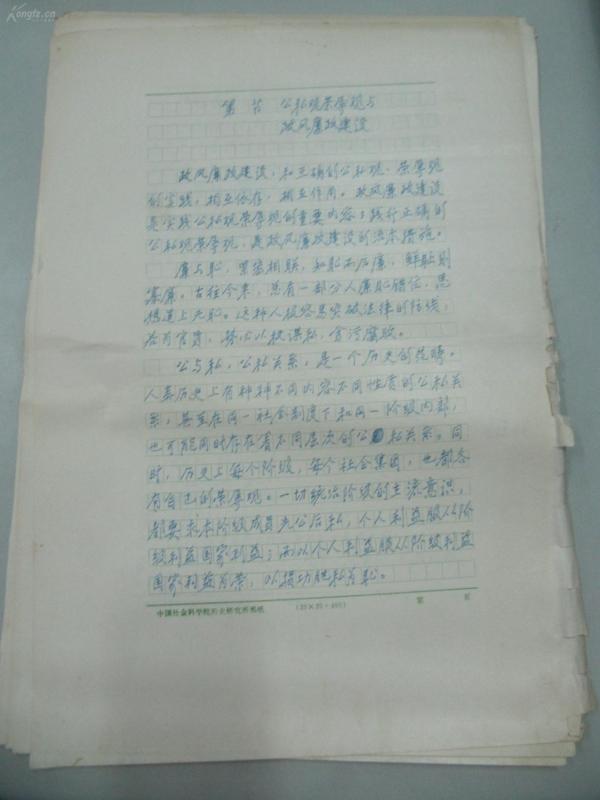 Kongfz.cn
第 节 公私观荣辱观与
政风廉政建设
政风廉政建设，和正确的公私观、荣辱观
的实践，相互依存，相互作用。政风廉政建设
是实践公私观荣辱观的重要内容；践行正确的
公私观荣辱观，是政风廉政建设的治本措施。
廉与耻，紧密相联，知耻而后廉，鲜耻则
寡廉。古往今来，总有一部分人廉耻错位，思
想道上无耻。这种人极容易突破法律的防线，
若为官吏，势必以权谋私，贪污腐败。
公与私，公私关系，是一个历史的范畴。
人类历史上有种种不同内容不同性质的公私关
系，甚至在同一社会制度下和同一阶级内部，
也可能同时存在着不同层次的公私关系。同
时，历史上每个阶级，每个社会集团，也都各
有自己的荣辱观。一切统治阶级的主流意识，
都要求本阶级成员先公后私，个人利益服从阶
级利益国家利益；而以个人利益服从阶级利益
国家利益为荣，以损功肥私为耻。
中国社会科学院历史研究所稿纸 (20×20=400) 第 页